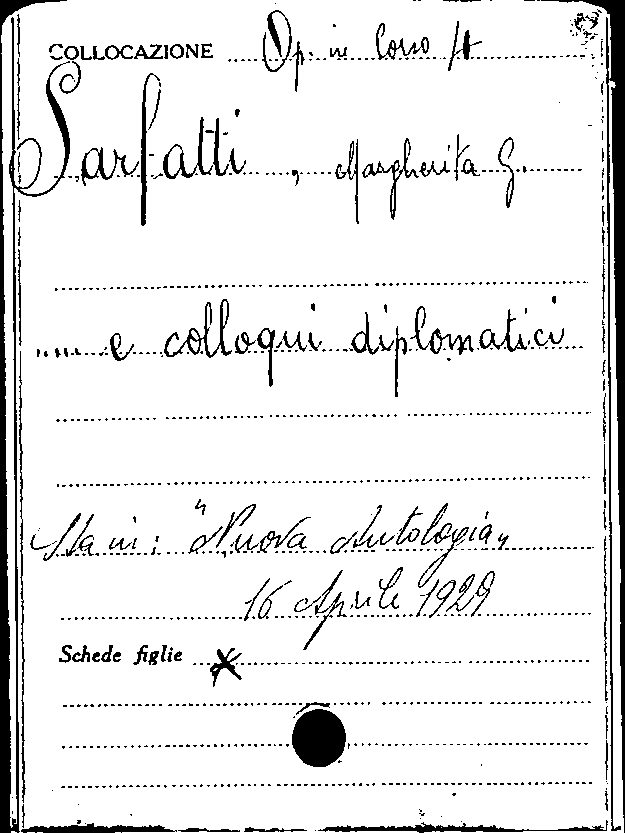 COLLOCAZIONE Op. in Corso A
Sarfatti, Margherita G.
..... e colloqui diplomatici
Sta in: "Nuova Antologia"
16 Aprile 1929
Schede figlie x